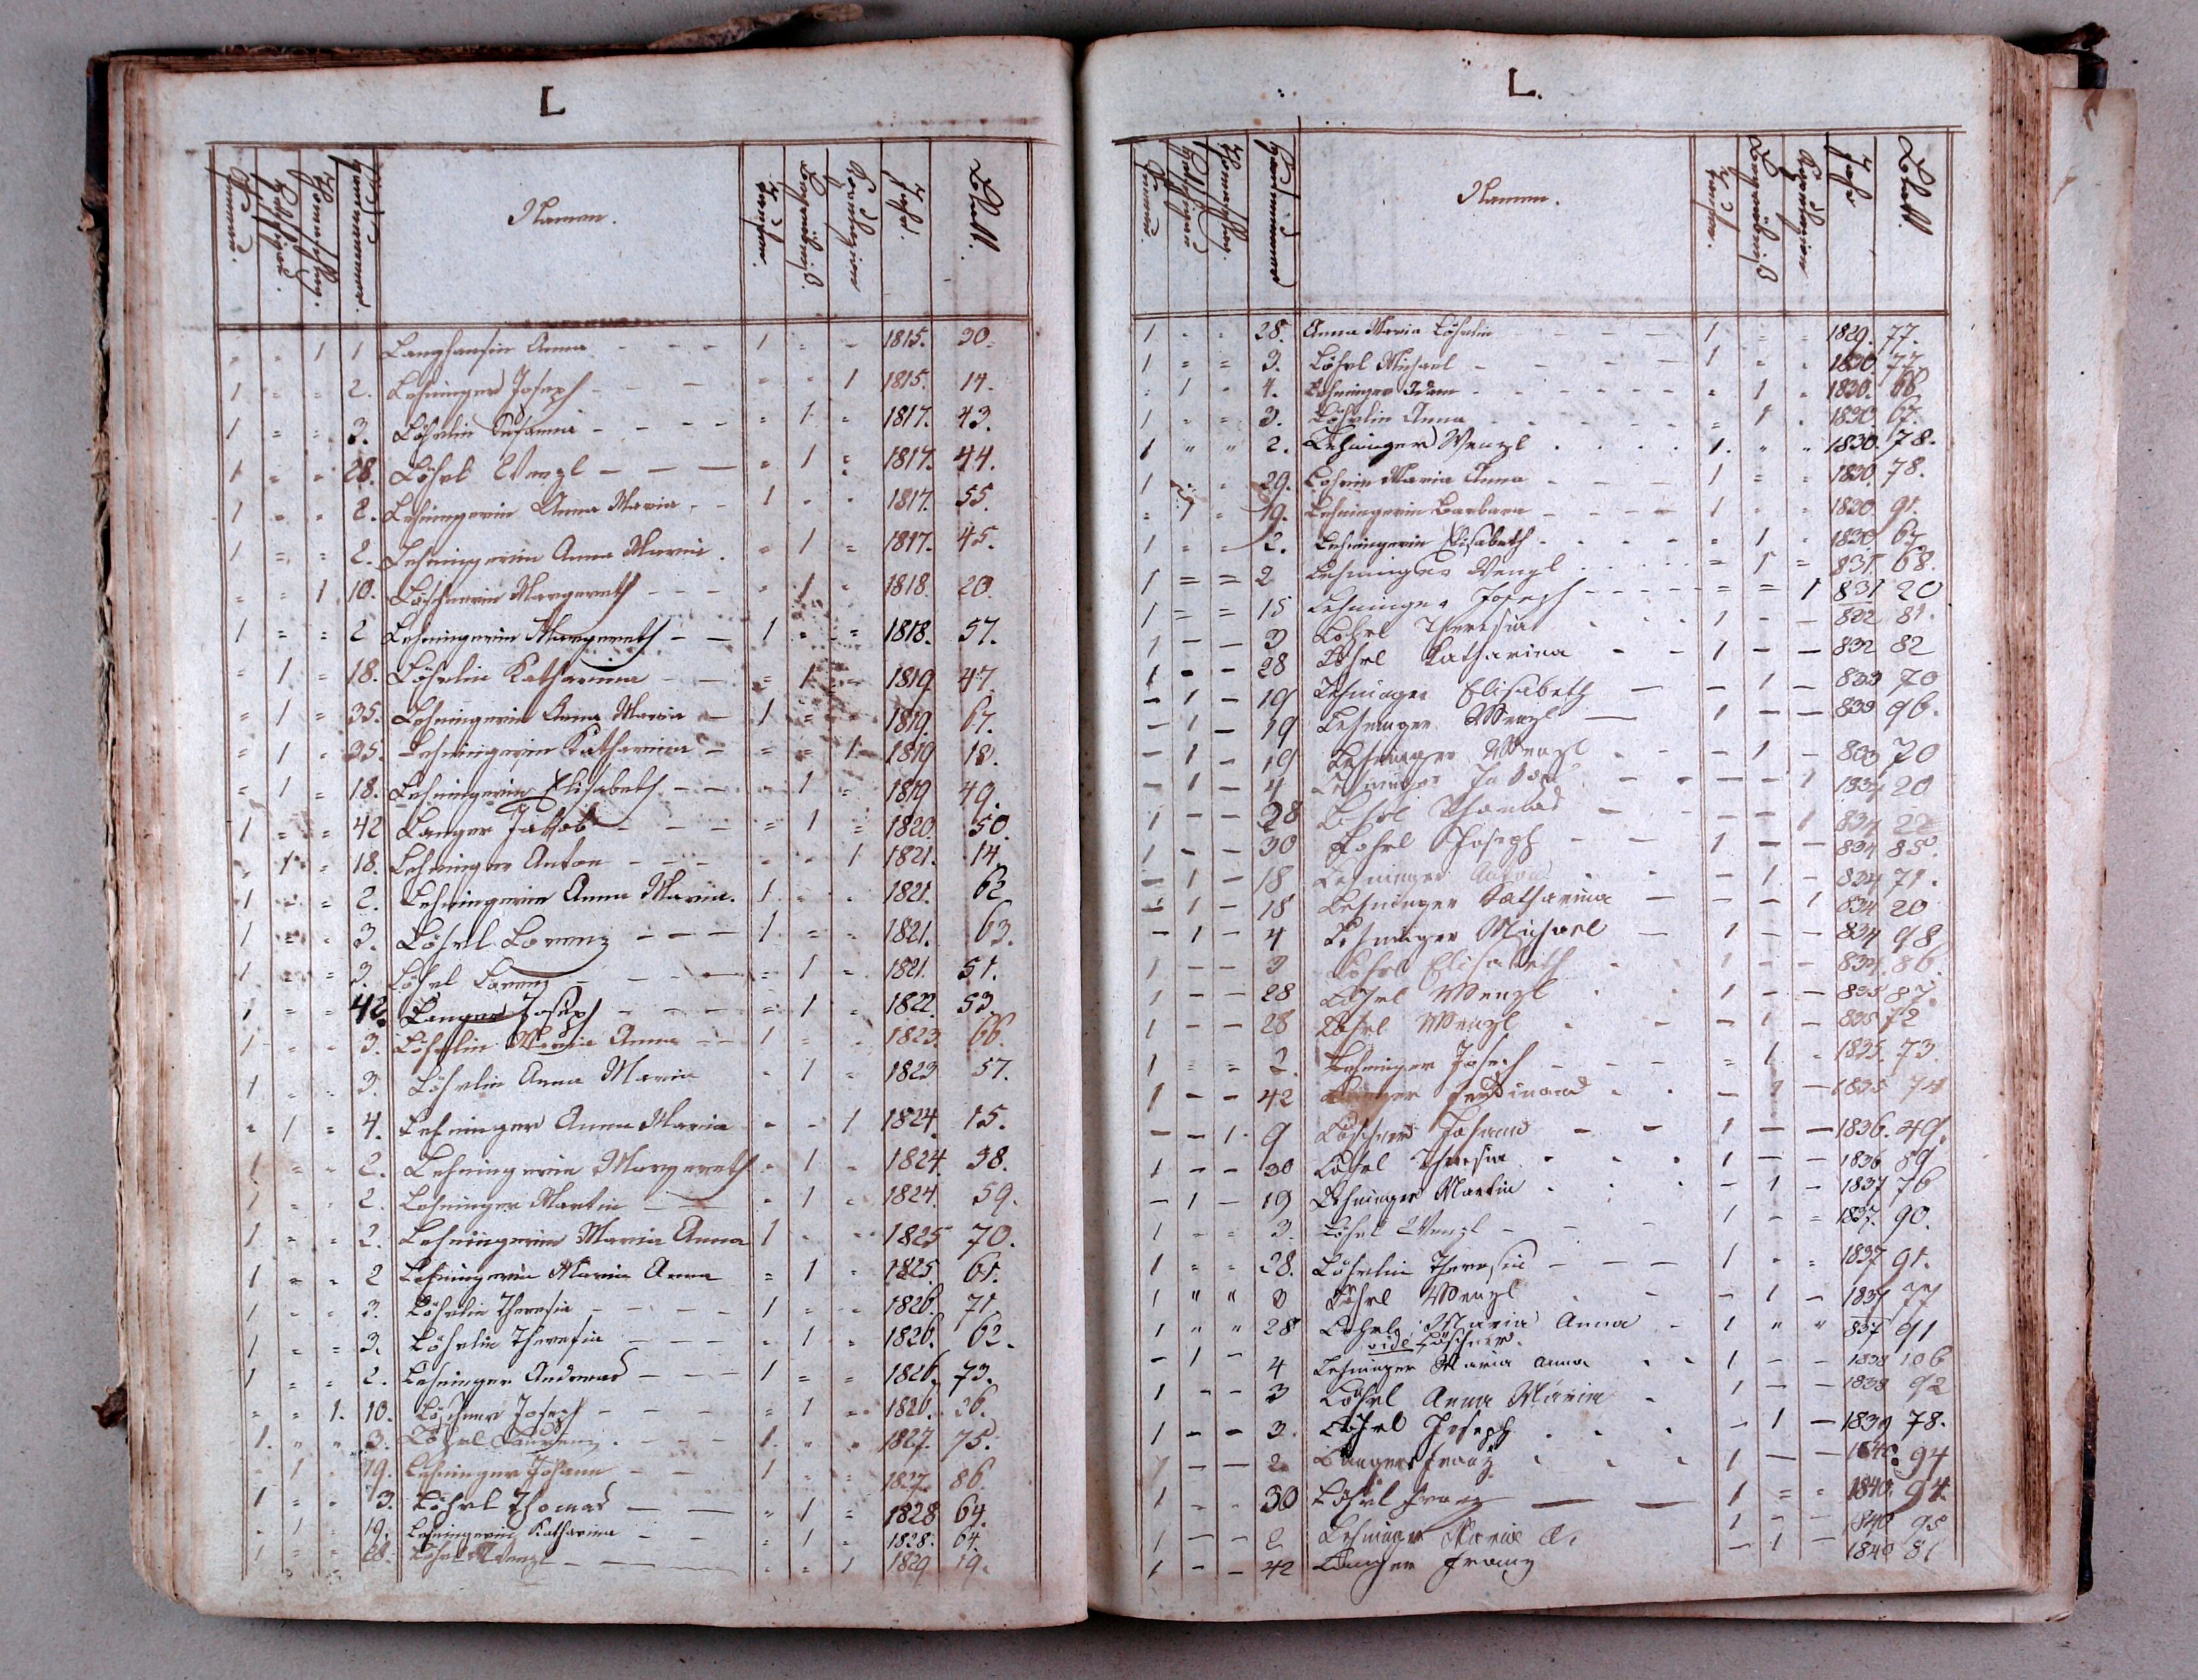 L
Namen.
Blatt.
1 1 Langhansin Anna - - - 1 = - 1815. 30.
1 = = 2. Lehninger Joseph - - - = - 1 1815. 14.
1 = = 3. Löhrlin Susanna - - - - = 1 - 1817. 43.
1 = = 28. Löhrl Wenzl - - - = 1 = 1817. 44.
1 = = 2. Lehningerin Anna Maria - - 1 - - 1817. 55.
1 = = 2. Lehningerin Anna Maria . = 1 = 1817. 45.
= = 1 10. Löschnerin Margareth - - - = 1 - 1818. 20.
1 = = 2 Lehningerin Margareth - - 1 = = 1818. 57.
= 1 = 18. Löhrlin Katharina - - = 1 = 1819 47.
= 1 = 35. Lehningerin Anna Maria - 1 = = 1819. 67.
= 1 = 35. Lehningerin Katharina - = = 1 1819 18.
= 1 = 18. Lehningerin Elisabeth - - - 1 = 1819 49.
1 = = 42 Langer Jakob - - - = 1 = 1820. 50.
= 1 = 18. Lehninger Anton - - - - - 1 1821. 14
1 = = 2. Lehningerin Anna Maria. 1 - - 1821. 62
1 = = 3. Löhrl Lorenz - - - 1 = = 1821. 63.
1 = = 3. Löhrl Lorenz - - - = 1 = 1821. 51.
1 = = 42. Langer Joseph - - - = 1 - 1822. 53.
1 = = 3. Löhrlin Maria Anna - - 1 = = 1823. 66.
1 = = 3. Löhrlin Anna Maria - 1 = 1823 57.
= 1 = 4. Lehninger Anna Maria = - 1 1824. 15.
1 = = 2. Lehningerin Margareth - 1 - 1824. 58.
1 = = 2. Lehninger Martin - - - 1 = 1824. 59.
1 = = 2. Lehningerin Maria Anna 1 - - 1825 70.
1 = = 2 Lehningerin Maria Anna = 1 - 1825. 61.
1 = = 3. Löhrlin Theresia - - - - 1 = = 1826. 71
1 = = 3. Löhrlin Theresia - - - - 1 = 1826. 62.
1 = = 2. Lehninger Andreas - - - 1 = = 1826. 73.
= = 1. 10. Löschner Joseph - - - = 1 = 1826. 36.
1. " " 3. Löhrl Laurenz . - - 1. " " 1827. 75.
- 1 = 19. Lehninger Johann - - 1 = = 1827. 86.
1 = = 3. Löhrl Thomas - - " 1 = 1828 64.
- 1 = 19. Lehningerin Katharina - - = 1 = 1828. 64.
1 = = 28. Löhrl Wenzl - - - - = 1 1829 19.
L.
Namen.
Blatt.
1 - - 28. Anna Maria Löhrlin - - - - 1 = = 1829. 77.
1 = = 3. Löhrl Michael - - - - 1 = = 1830. 77.
- 1 - 4. Lehninger Adam - - - - - = 1 = 1830. 66.
1 - = 3. Löhrlin Anna - - - - - = 1 - 1830. 67.
1 " " 2. Lehninger Wenzl . . . . 1. " " 1830. 78.
1 = = 29. Löhrin Maria Anna - - - 1 = = 1830. 78.
= 1 = 19. Lehningerin Barbara - - - - 1 = = 1830. 91.
1 = = 2. Lehningerin Elisabeth - - - - = 1 - 1830 67.
1 = = 2 Lehninger Wenzl . . . . . = 1 = 831. 68.
1 = = 15 Lehninger Joseph - - - - - = = 1 831 20
1 - - 3 Löhrl Theresia . . . 1 - - 832 81.
1 - - 28 Löhrl Katharina - - 1 - - 832 82
- 1 - 19 Lehninger Elisabeth - - 1 - 833 70
- 1 - 19 Lehninger Wenzl - 1 - - 833 96.
- 1 - 19 Lehninger Wenzl - - - 1 - 833 70
- 1 - 4 Lehninger Jakob - - - - 1 1834 20
1 - - 28 Löhrl Thomas - - - - 1 834 22
1 - - 30 Löhrl Joseph - - 1 - - 834 85.
- 1 - 18 Lehninger Anton - - - 1 - 834 71.
- 1 - 18 Lehninger Katharina - - - 1 834 20
- 1 - 4 Lehninger Michael - 1 - - 834 98
1 - - 3 Löhrl Elisabeth - . 1 - - 834. 86.
1 - - 28 Löhrl Wenzl . . 1 - - 835 87.
1 - - 28 Löhrl Wenzl . - - 1 - 835 72
1 = = 2. Lehninger Joseph - - - = 1. - 1835. 73.
1 - - 42 Langer Ferdinand . . - 1 - 1835 74
- - 1. 9 Löschner Johann - - 1 - - 1836. 49.
1 - - 30 Löhrl Theresia . . . 1 - - 1836 89
- 1 - 19 Lehninger Martin . . . - 1 - 1837 76
1 - = 3. Löhrl Wenzl - - - 1 - = 1837. 90.
1 = = 28. Löhrlin Theresia - - - 1 = = 1837 91.
1 " " 3 Löhrl Wenzl . - - 1 - 1837 77
1 " " 28 Löhrl Maria Anna - 1 " " 837 91
vide Löschner.
- 1 - 4 Lehninger Maria Anna . . 1 - - 1838 106
1 - - 3 Löhrl Anna Maria - 1 - - 1838 92
1 - - 3. Löhrl Joseph . . . - 1 - 1839 78.
1 - - 2. Langer Franz . . . 1 - - 1840 94
1 - - 30 Löhrl Franz - - 1 = = 1840. 94.
1 - - 2 Lehninger Maria A. 1 - - 1840 95
1 - - 42 Langer Franz - 1 - 1840 81